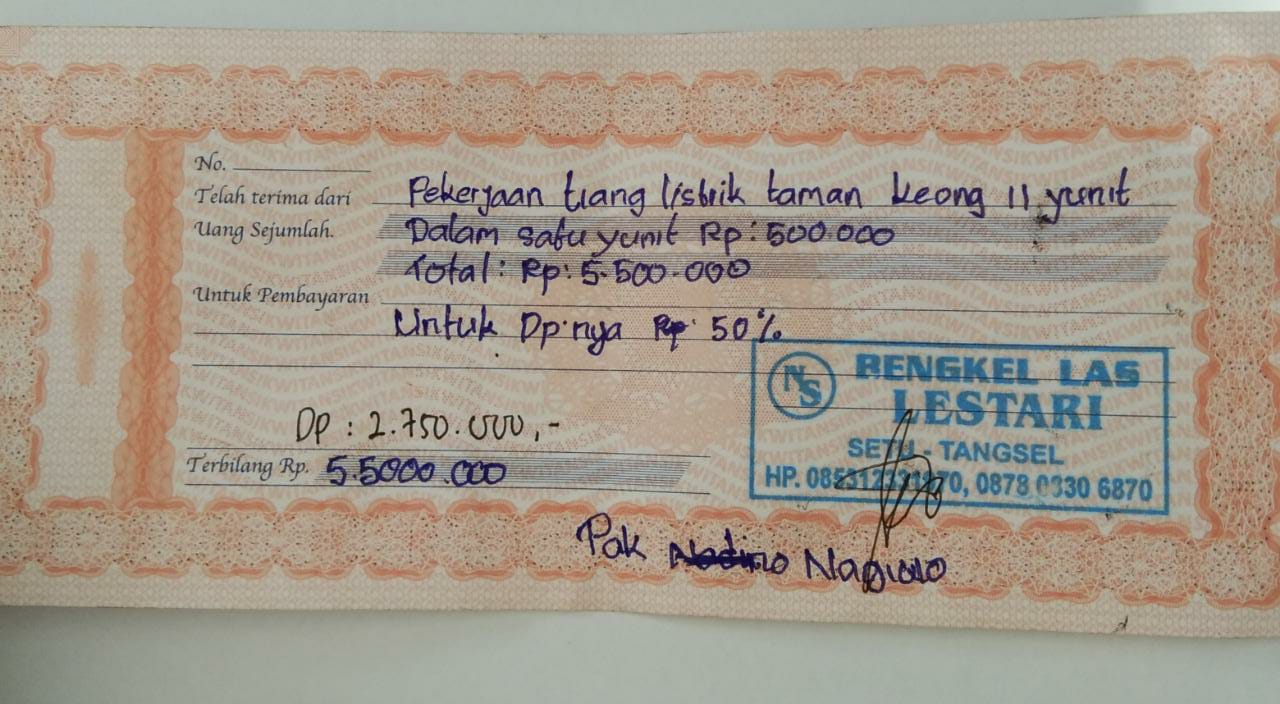 No.
Telah terima dari Pekerjaan tiang listrik taman keong 11 yunit
Uang Sejumlah. Dalam satu yunit Rp: 500.000
Total: Rp: 5.500.000
Untuk Pembayaran
Untuk Dp.nya Rp 50%
NS BENGKEL LAS
LESTARI
SETU - TANGSEL
HP. 0878 0330 6870
DP : 2.750.000,-
Terbilang Rp. 5.5000.000
Pak